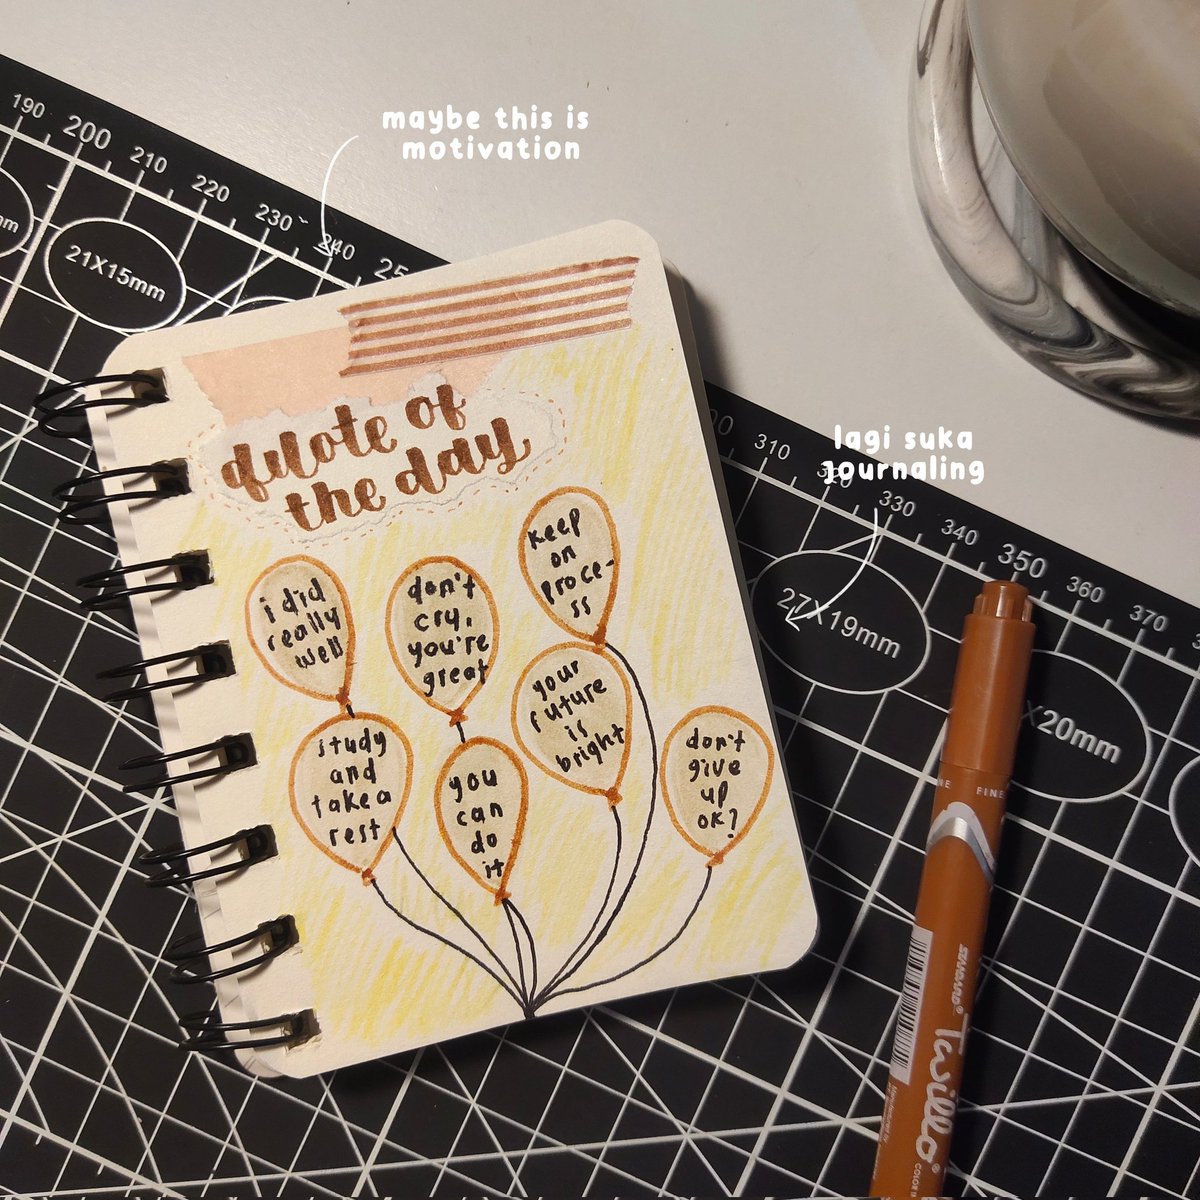 maybe this is
motivation
190
200
210
220
230
240
21X15mm
quote of
the day
i did
really
well
don't
cry,
you're
great
keep
on
proce-
ss
study
and
take a
rest
you
can
do
it
your
future
is
bright
don't
give
up
ok?
lagi suka
journaling
310
320
330
340
350
360
370
27X19mm
X20mm
FINE
STANDARD®
Tasilla®